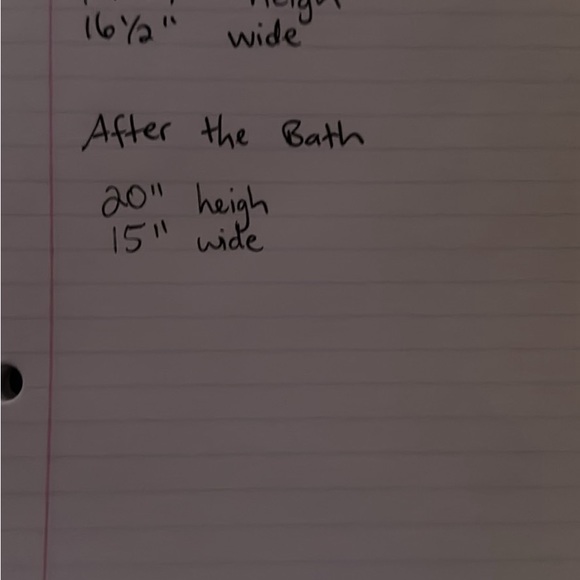 heigh
16 1/2" wide
After the Bath
20" heigh
15" wide